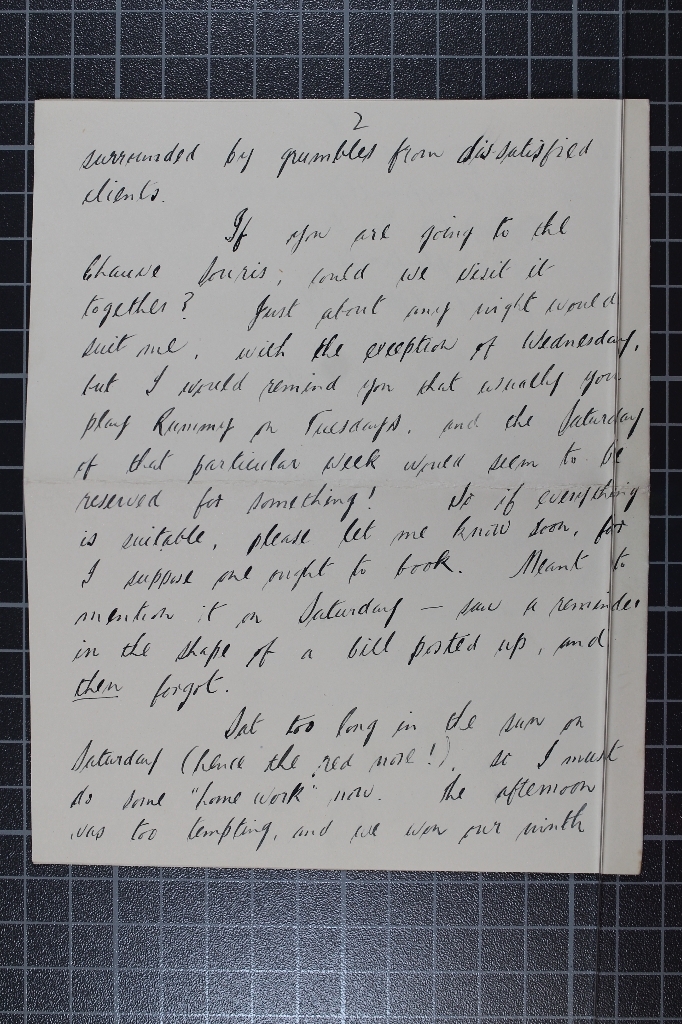 2
surrounded by grumbles from dis-satisfied
clients.
If you are going to the
Chauve Souris, could we visit it
together? Just about any night would
suit me, with the exception of Wednesday,
but I would remind you that usually you
play Rummy on Tuesdays, and the Saturday
of that particular week would seem to be
reserved for something! So if everything
is suitable, please let me know soon, for
I suppose one ought to book. Meant to
mention it on Saturday — saw a reminder
in the shape of a bill posted up, and
then forgot.
Sat too long in the sun on
Saturday (hence the red nose!), so I must
do some "home work" now. The afternoon
was too tempting, and we won our ninth